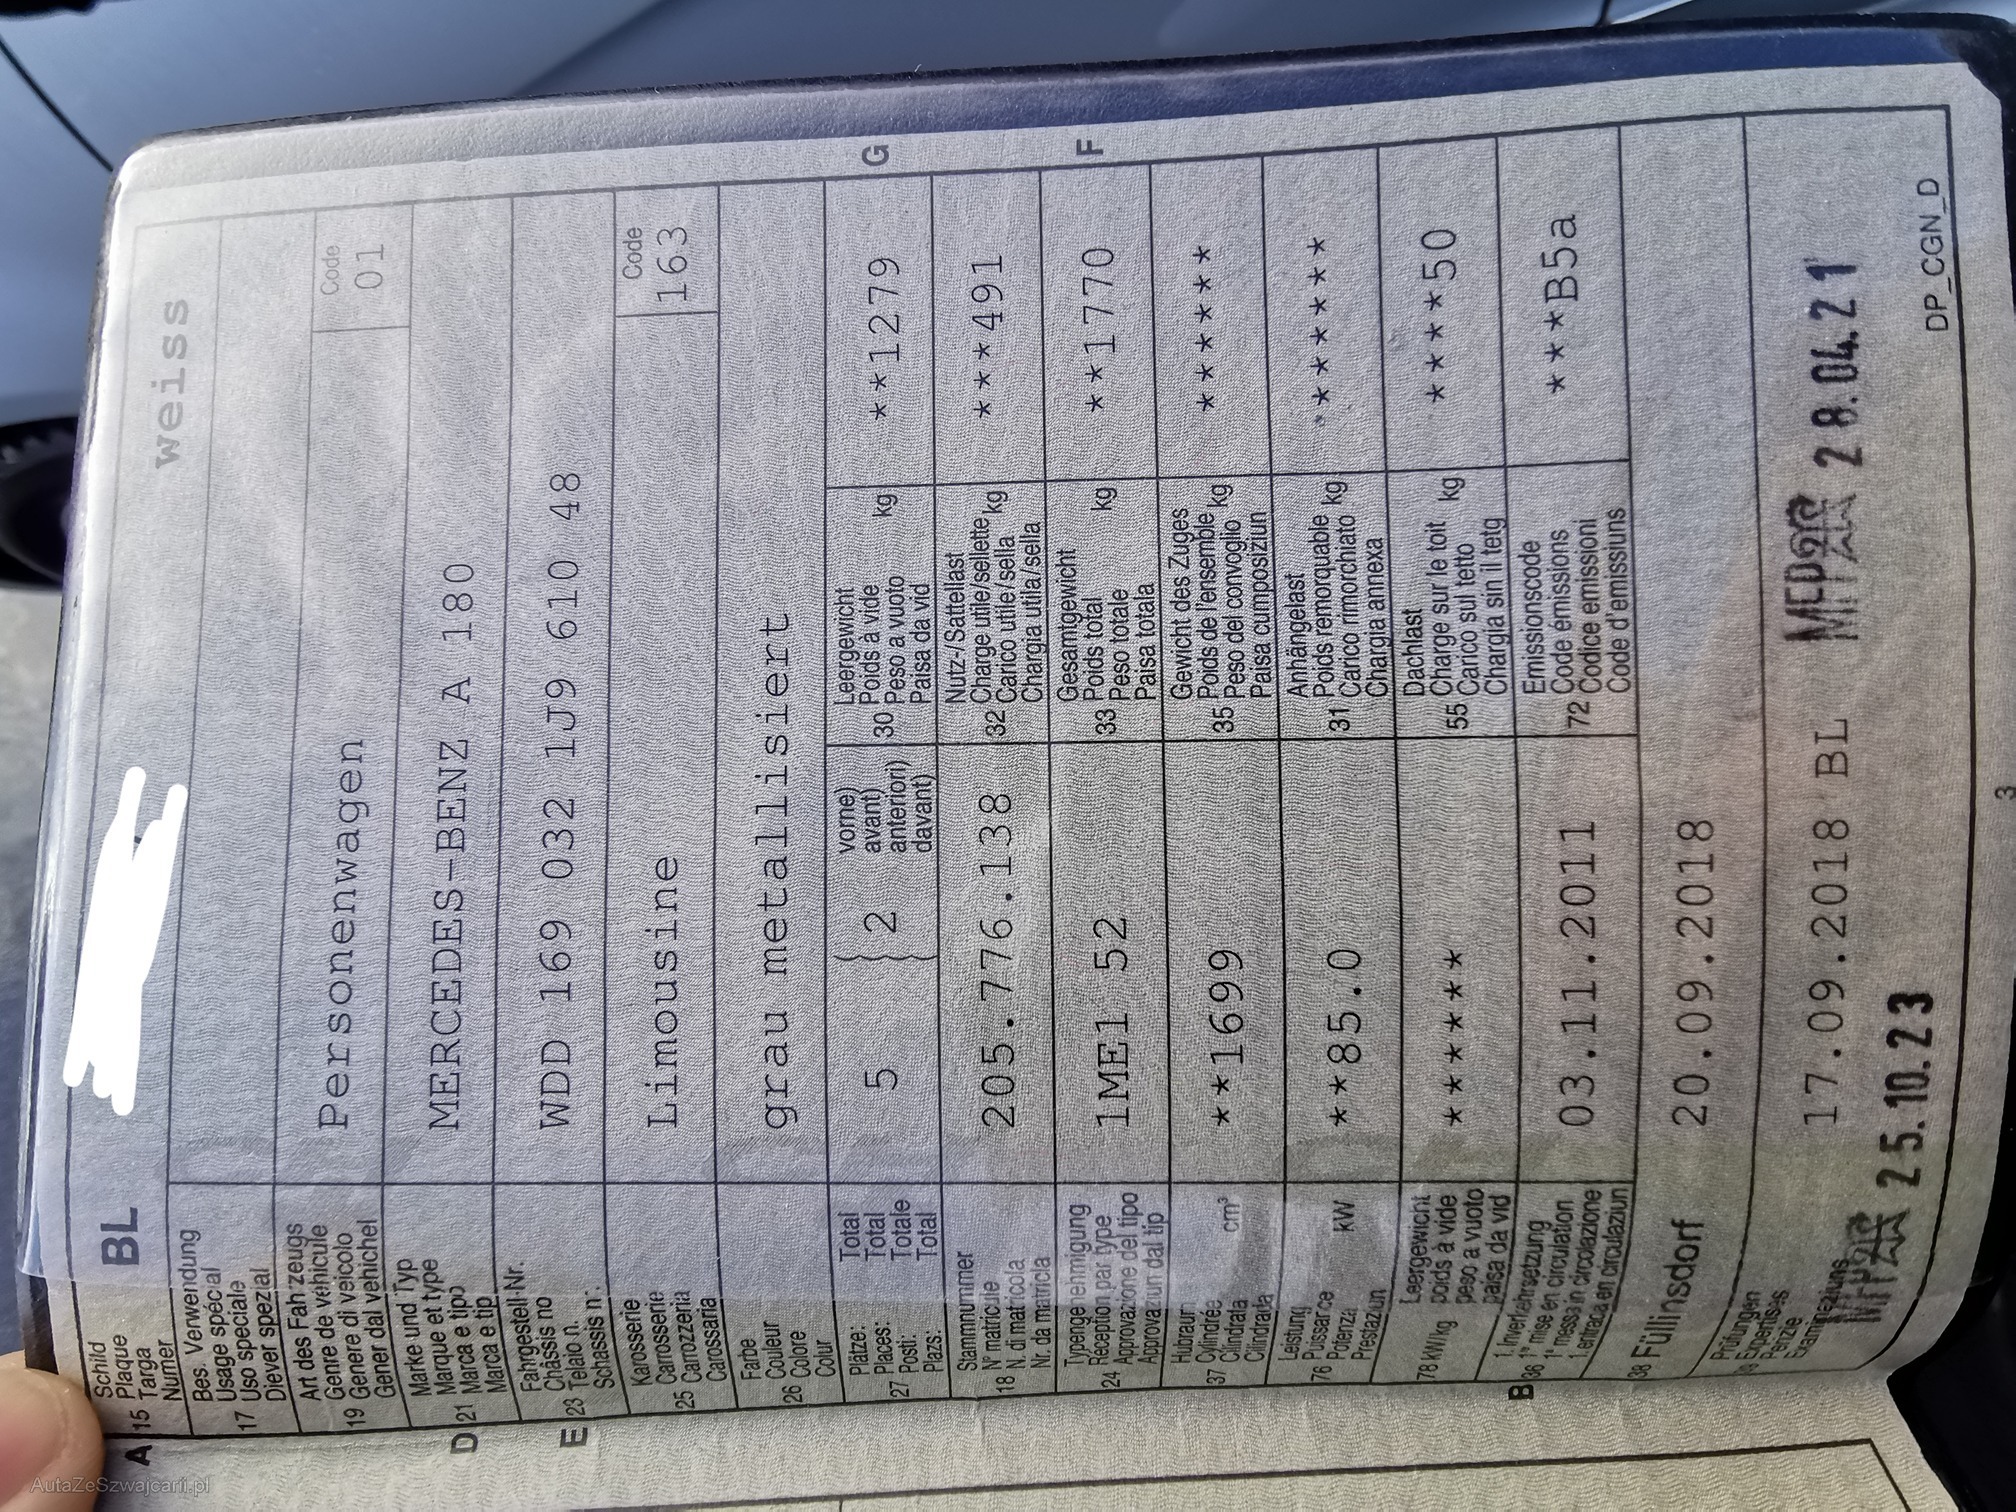 A 15
Schild
Plaque
Targa
Numer
BL
weiss
17
Bes. Verwendung
Usage spécial
Uso speciale
Diever spezial
19
Art des Fahrzeugs
Genre de véhicule
Genere di veicolo
Gener dal vehichel
Personenwagen
Code
01
D 21
Marke und Typ
Marque et type
Marca e tipo
Marca e tip
MERCEDES-BENZ A 180
E 23
Fahrgestell-Nr.
Châssis no
Telaio n.
Schassis nr.
WDD 169 032 1J9 610 48
25
Karosserie
Carosserie
Carozzeria
Carossaria
Limousine
Code
163
26
Farbe
Couleur
Colore
Colur
grau metallisiert
27
Plätze: Total
Places: Total
Posti: Totale
Plazs: Total
5
2
vorne)
avant)
anteriori)
davant)
30
Leergewicht
Poids à vide
Peso a vuoto
Paisa da vid
kg
**1279
G
18
Stammnummer
N° matricule
N. di matricola
Nr. da matricla
205.776.138
32
Nutz-/Sattellast
Charge utile/sellette
Carico utile/sella
Chargia utila/sella
kg
***491
24
Typengenehmigung
Réception par type
Approvazione del tipo
Approvaziun dal tip
1ME1 52
33
Gesamtgewicht
Poids total
Peso totale
Paisa totala
kg
**1770
F
37
Hubraum
Cylindrée
Cilindrata
Cilindrada
cm³
**1699
35
Gewicht des Zuges
Poids de l'ensemble
Peso del convoglio
Paisa cumposiziun
kg
*******
76
Leistung
Puissance
Potenza
Prestaziun
kW
**85.0
31
Anhängelast
Poids remorquable
Carico rimorchiato
Chargia annexa
kg
*******
78 kW/kg
Leergewicht
poids à vide
peso a vuoto
paisa da vid
*******
55
Dachlast
Charge sur le toit
Carico sul tetto
Chargia sin il tetg
kg
*****50
B 36
1. Inverkehrsetzung
1re mise en circulation
1a messa in circolazione
1. entrada en circulaziun
03.11.2011
72
Emissionscode
Code émissions
Codice emissioni
Code d'emissiuns
***B5a
38 Füllinsdorf
20.09.2018
39
Prüfungen
Expertises
Perizie
Examinaziuns
17.09.2018 BL
MFP 28.04.21
MFP 25.10.23
DP_CGN_D
3
AutaZeSzwajcarii.pl